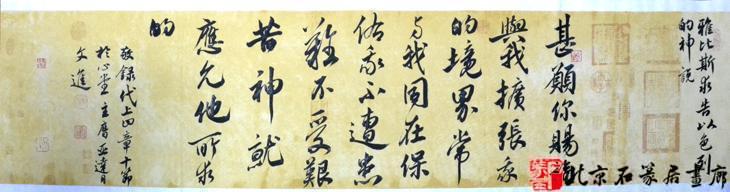 雅比斯求告以色列
的神說
甚願你賜福
與我擴張我
的境界常
与我同在保
佑我不遭患
難不受艱
苦神就
應允他所求
的
敬錄代上四章十節
於心堂主曆亞達月
文進
北京石篆居畫廊